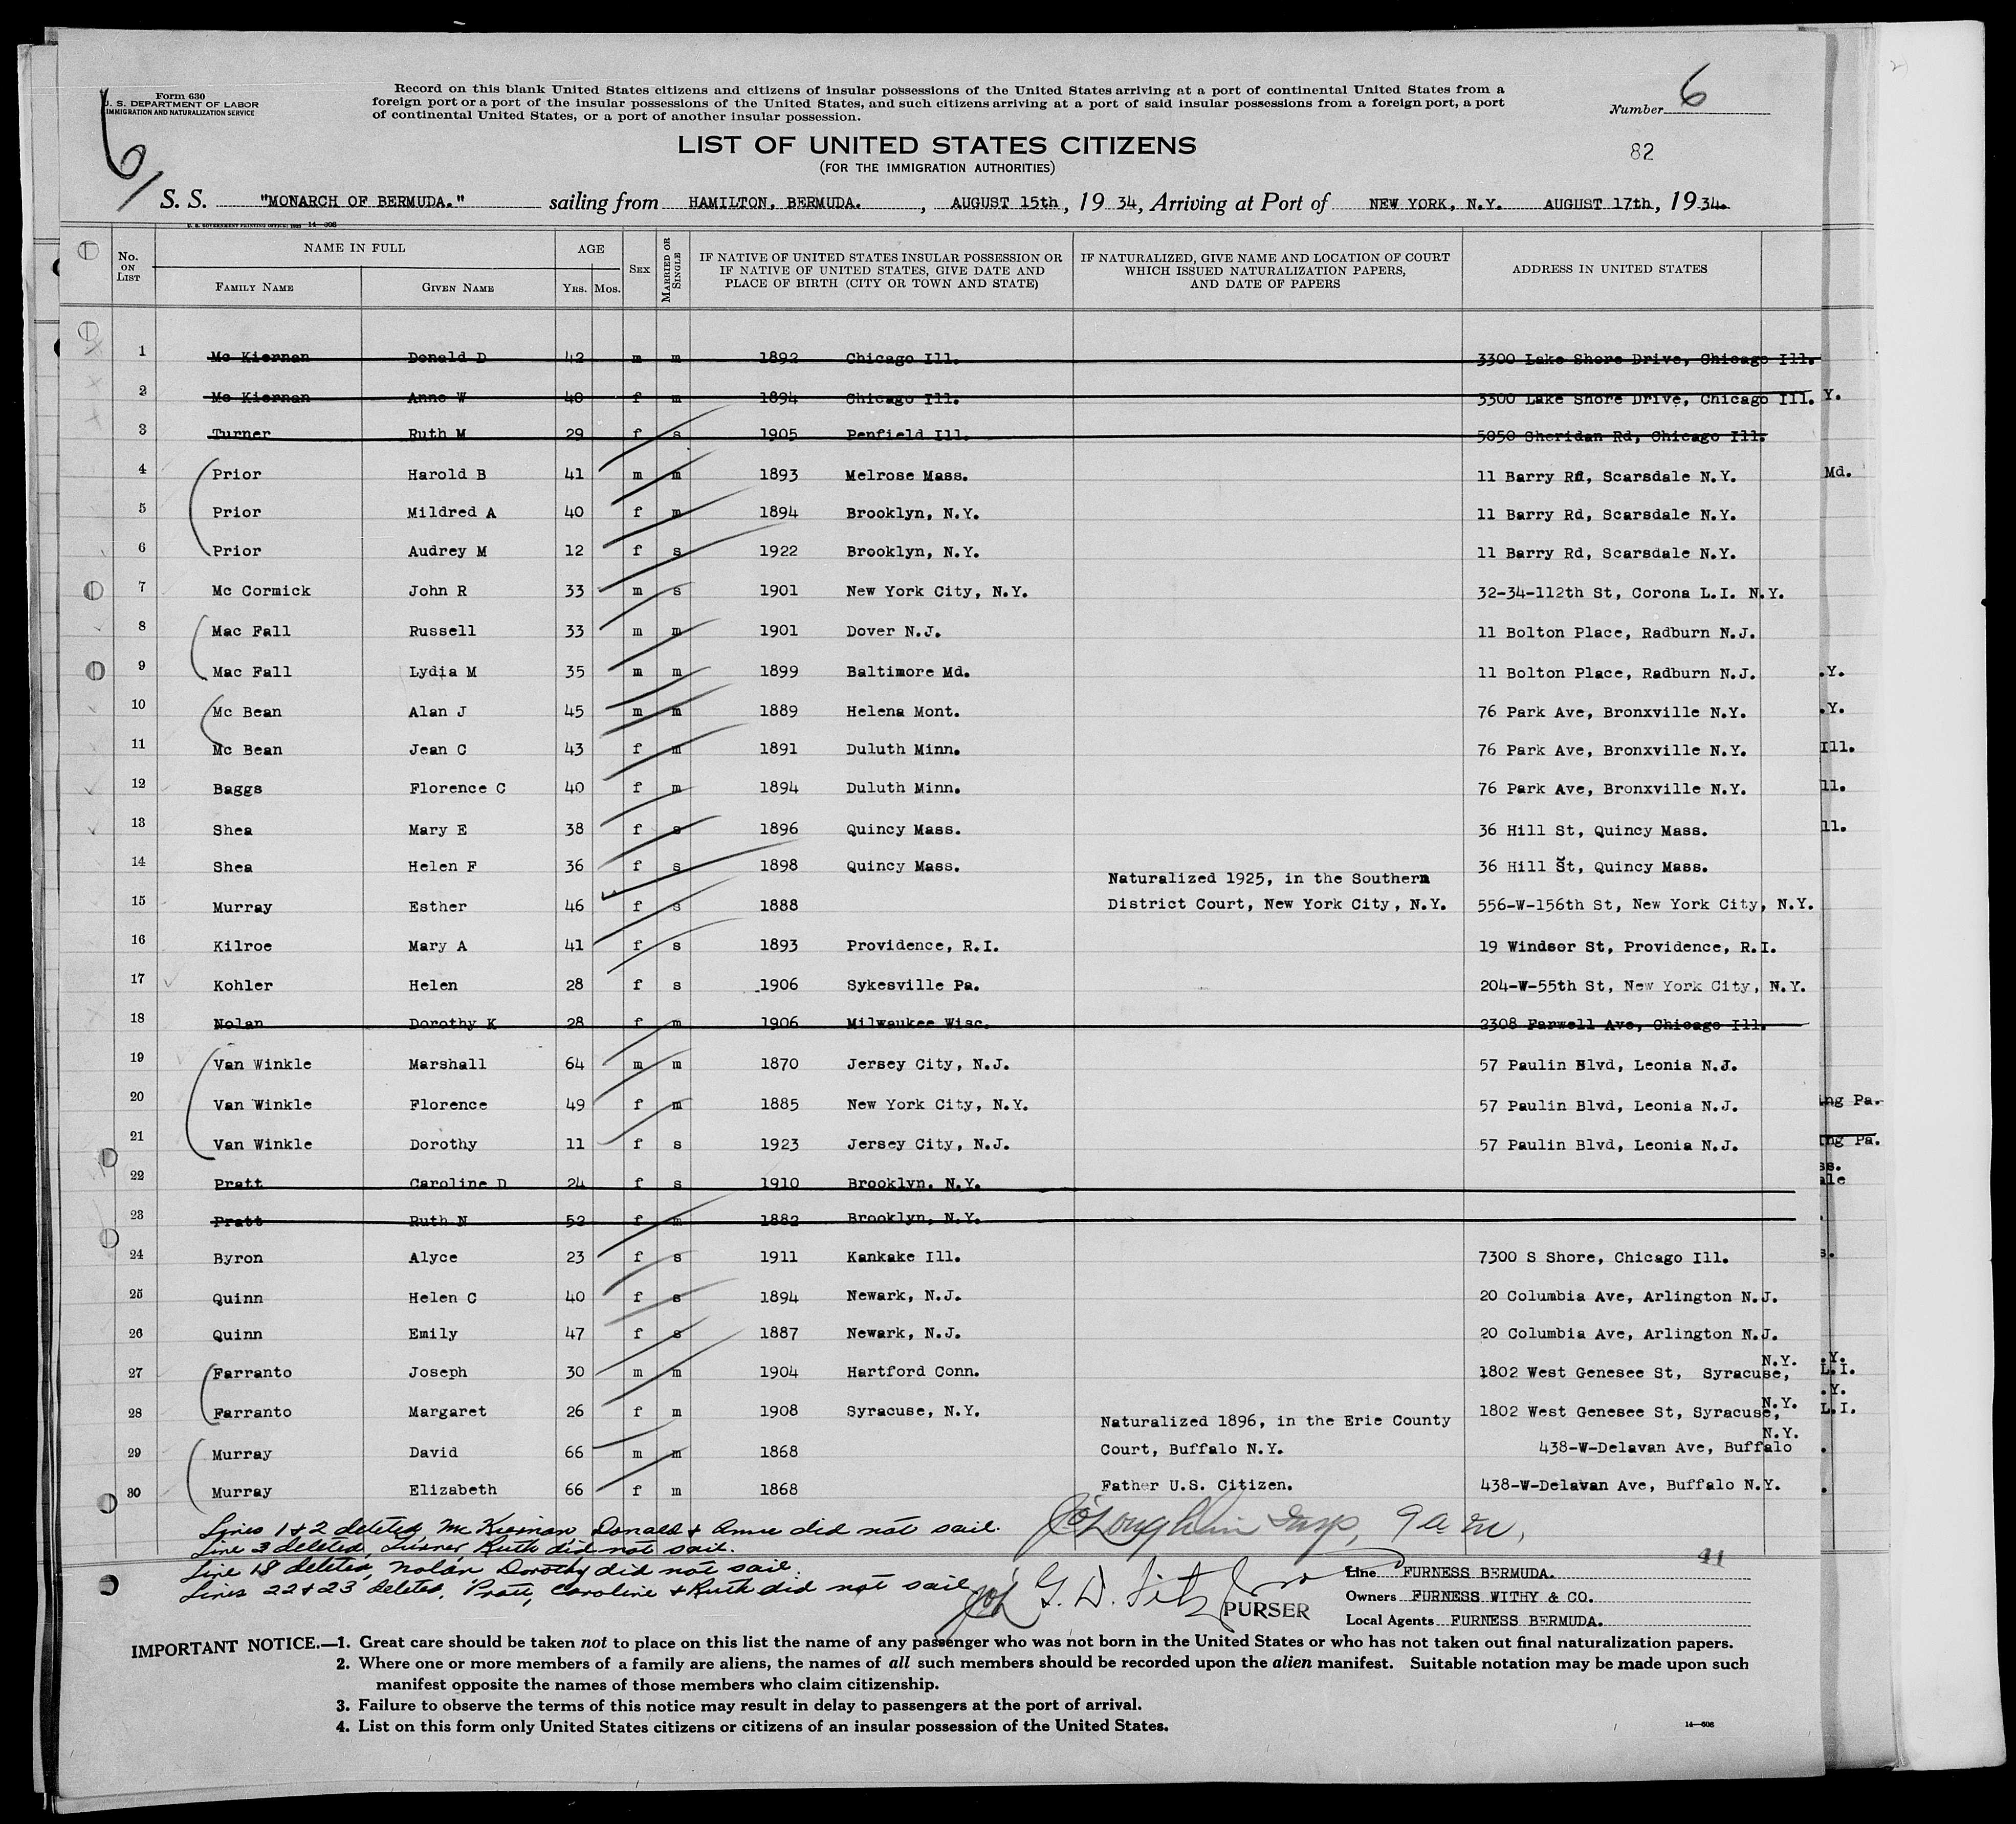 Form 630
U. S. DEPARTMENT OF LABOR
IMMIGRATION AND NATURALIZATION SERVICE
Record on this blank United States citizens and citizens of insular possessions of the United States arriving at a port of continental United States from a
foreign port or a port of the insular possessions of the United States, and such citizens arriving at a port of said insular possessions from a foreign port, a port
of continental United States, or a port of another insular possession.
Number 6
LIST OF UNITED STATES CITIZENS
(FOR THE IMMIGRATION AUTHORITIES)
82
6/
S. S. "MONARCH OF BERMUDA." sailing from HAMILTON, BERMUDA. , AUGUST 15th, 19 34, Arriving at Port of NEW YORK, N.Y. AUGUST 17th, 19 34.
U. S. GOVERNMENT PRINTING OFFICE: 1933 14—608
No. ON LIST NAME IN FULL FAMILY NAME GIVEN NAME AGE YRS. MOS. SEX MARRIED OR SINGLE IF NATIVE OF UNITED STATES INSULAR POSSESSION OR IF NATIVE OF UNITED STATES, GIVE DATE AND PLACE OF BIRTH (CITY OR TOWN AND STATE) IF NATURALIZED, GIVE NAME AND LOCATION OF COURT WHICH ISSUED NATURALIZATION PAPERS, AND DATE OF PAPERS ADDRESS IN UNITED STATES
1 Mc Kiernan Donald D 42 m m 1892 Chicago Ill. 3300 Lake Shore Drive, Chicago Ill.
2 Mc Kiernan Anne W 40 f m 1894 Chicago Ill. 3300 Lake Shore Drive, Chicago Ill. Y.
3 Turner Ruth M 29 f s 1905 Penfield Ill. 5050 Sheridan Rd, Chicago Ill.
4 Prior Harold B 41 m m 1893 Melrose Mass. 11 Barry Rd, Scarsdale N.Y. Md.
5 Prior Mildred A 40 f m 1894 Brooklyn, N.Y. 11 Barry Rd, Scarsdale N.Y.
6 Prior Audrey M 12 f s 1922 Brooklyn, N.Y. 11 Barry Rd, Scarsdale N.Y.
7 Mc Cormick John R 33 m s 1901 New York City, N.Y. 32-34-112th St, Corona L.I. N.Y.
8 Mac Fall Russell 33 m m 1901 Dover N.J. 11 Bolton Place, Radburn N.J.
9 Mac Fall Lydia M 35 m m 1899 Baltimore Md. 11 Bolton Place, Radburn N.J. .Y.
10 Mc Bean Alan J 45 m m 1889 Helena Mont. 76 Park Ave, Bronxville N.Y. .Y.
11 Mc Bean Jean C 43 f m 1891 Duluth Minn. 76 Park Ave, Bronxville N.Y. Ill.
12 Baggs Florence C 40 f m 1894 Duluth Minn. 76 Park Ave, Bronxville N.Y. ll.
13 Shea Mary E 38 f s 1896 Quincy Mass. 36 Hill St, Quincy Mass. ll.
14 Shea Helen F 36 f s 1898 Quincy Mass. 36 Hill St, Quincy Mass.
Naturalized 1925, in the Southern
15 Murray Esther 46 f s 1888 District Court, New York City, N.Y. 556-W-156th St, New York City, N.Y.
16 Kilroe Mary A 41 f s 1893 Providence, R.I. 19 Windsor St, Providence, R.I.
17 Kohler Helen 28 f s 1906 Sykesville Pa. 204-W-55th St, New York City, N.Y.
18 Nolan Dorothy K 28 f m 1906 Milwaukee Wisc. 2308 Farwell Ave, Chicago Ill.
19 Van Winkle Marshall 64 m m 1870 Jersey City, N.J. 57 Paulin Blvd, Leonia N.J.
20 Van Winkle Florence 49 f m 1885 New York City, N.Y. 57 Paulin Blvd, Leonia N.J. ing Pa.
21 Van Winkle Dorothy 11 f s 1923 Jersey City, N.J. 57 Paulin Blvd, Leonia N.J. ing Pa.
ss.
22 Pratt Caroline D 24 f s 1910 Brooklyn. N.Y. ale
23 Pratt Ruth N 52 f m 1882 Brooklyn, N.Y.
24 Byron Alyce 23 f s 1911 Kankake Ill. 7300 S Shore, Chicago Ill. s.
25 Quinn Helen C 40 f s 1894 Newark, N.J. 20 Columbia Ave, Arlington N.J.
26 Quinn Emily 47 f s 1887 Newark, N.J. 20 Columbia Ave, Arlington N.J.
N.Y. .Y.
27 Farranto Joseph 30 m m 1904 Hartford Conn. 1802 West Genesee St, Syracuse, L.I.
N.Y. .Y.
28 Farranto Margaret 26 f m 1908 Syracuse, N.Y. 1802 West Genesee St, Syracuse, L.I.
Naturalized 1896, in the Erie County N.Y.
29 Murray David 66 m m 1868 Court, Buffalo N.Y. 438-W-Delavan Ave, Buffalo
30 Murray Elizabeth 66 f m 1868 Father U.S. Citizen. 438-W-Delavan Ave, Buffalo N.Y.
Lines 1 & 2 deleted, Mc Kiernan, Donald & Anne did not sail.
Line 3 deleted, Turner Ruth did not sail.
Line 18 deleted, Nolan Dorothy did not sail.
Lines 22 & 23 deleted, Pratt, Caroline & Ruth did not sail
J O'Loughlin Insp, 9 a m,
41
G. D. PURSER
Line FURNESS BERMUDA.
Owners FURNESS WITHY & CO.
Local Agents FURNESS BERMUDA.
IMPORTANT NOTICE.—1. Great care should be taken not to place on this list the name of any passenger who was not born in the United States or who has not taken out final naturalization papers.
2. Where one or more members of a family are aliens, the names of all such members should be recorded upon the alien manifest. Suitable notation may be made upon such
manifest opposite the names of those members who claim citizenship.
3. Failure to observe the terms of this notice may result in delay to passengers at the port of arrival.
4. List on this form only United States citizens or citizens of an insular possession of the United States.
14—608